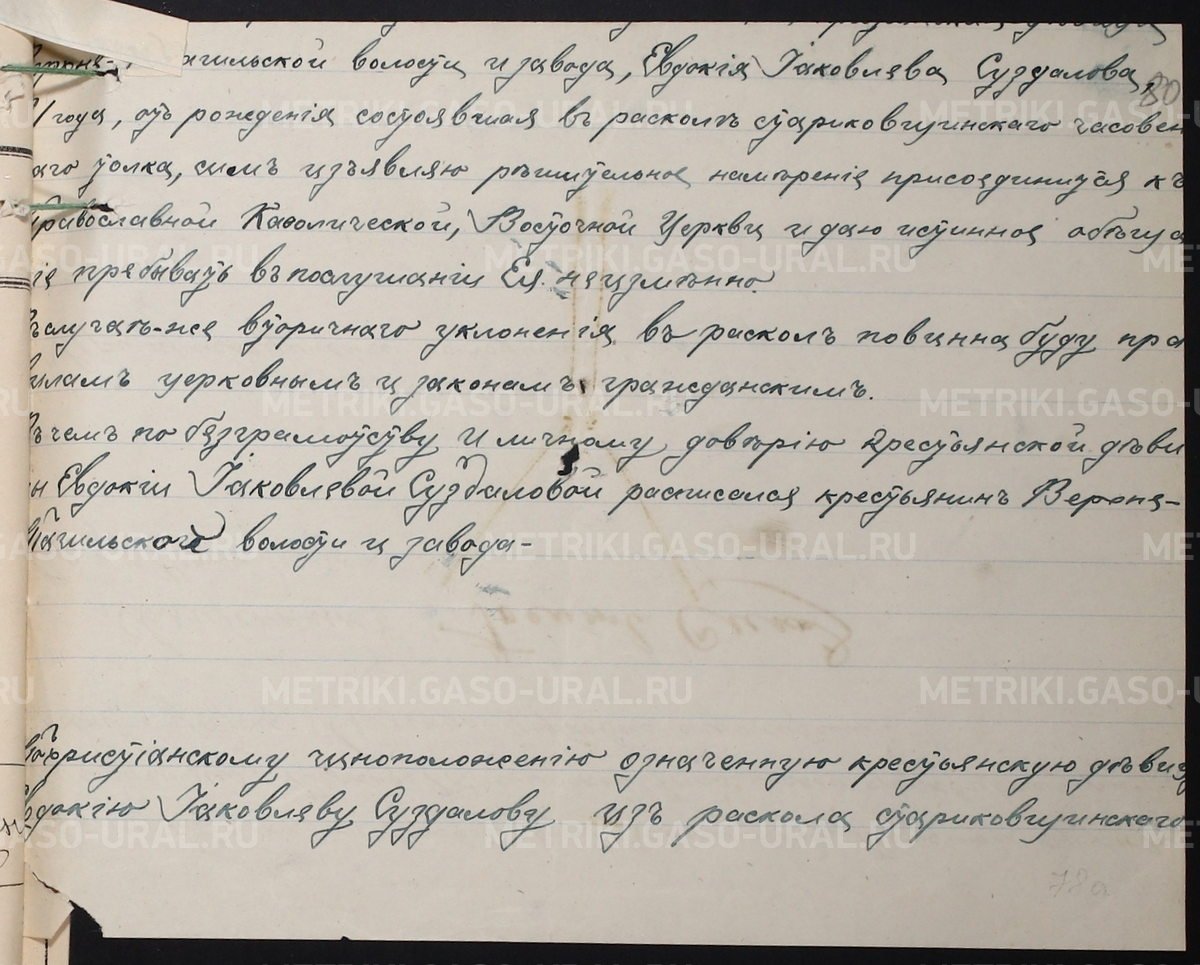 волости и завода, Евдокія Іаковлева Суздалова, 80
года, отъ рожденія состоявшая въ расколѣ стариковщинскаго часовен
толка, симъ изъявляю рѣшительное намѣреніе присоединится къ
Православной Каѳолической, Восточной Церкви и даю истинное обѣща
ніе пребывать въ послушаніи Ея неизмѣнно.
Въ случаѣ-же вторичнаго уклоненія въ расколъ повинна буду пра
виламъ церковнымъ и законамъ гражданскимъ.
Въ чемъ по безграмотству и личному довѣрію крестьянской дѣви
цы Евдокіи Іаковлевой Суздаловой расписался крестьянинъ Верхне-
Тагильского волости и завода-
христіанскому чиноположенію означенную крестьянскую дѣвицу
Евдокію Іаковлеву Суздалову изъ раскола стариковщинскаго
78а
METRIKI.GASO-URAL.RU